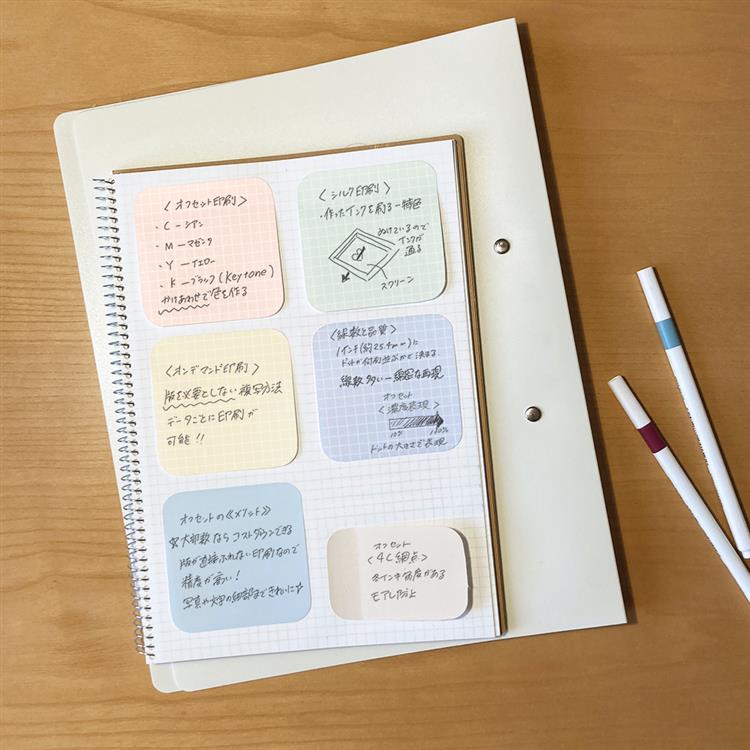 〈オフセット印刷〉
・C－シアン
・M－マゼンタ
・Y－イエロー
・K－ブラック(Keytone)
かけあわせで色を作る
〈シルク印刷〉
・作ったインクを刷る－特色
ぬけているので
インクが
通る
スクリーン
〈オンデマンド印刷〉
版を必要としない複写方法
データごとに印刷が
可能!!
〈線数と品質〉
1インチ(約25.4mm)に
ドットが何列並ぶかで決まる
線数多い－綿密な再現
オフセット
〈濃度表現〉
10% 100%
ドットの大きさで表現
オフセットの《メリット》
大部数ならコストダウンできる
版が直接ふれない印刷なので
精度が高い!
写真や文字の細部まできれいに☆
オフセット
〈4C網点〉
各インキ角度がある
モアレ防止